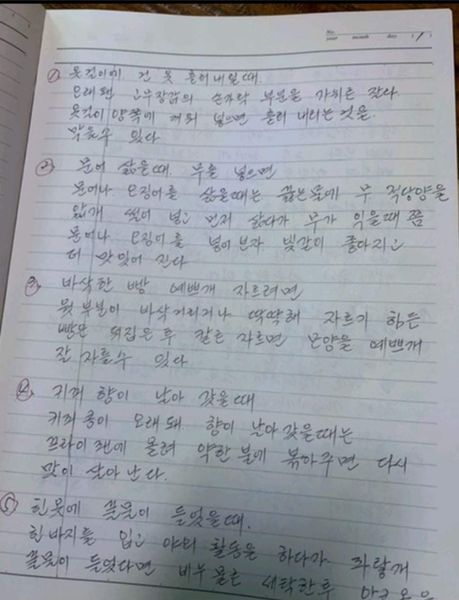 No.
year month day ( )
① 옷걸이에 건 옷 흘러내릴때.
오래된 고무장갑의 손가락 부분을 가위로 잘라
옷걸이 양쪽에 끼워 넣으면 흘러 내리는 것을
막을수 있다
② 문어 삶을때. 무를 넣으면
문어나 오징어를 삶을때는 끓는물에 무 적당양을
얇게 썰어 넣고 먼저 삶다가 무가 익을때 쯤
문어나 오징어를 넣어보자 빛갈이 좋아지고
더 맛있어 진다
③ 바삭한 빵 예쁘게 자르려면
윗부분이 바삭거리거나 딱딱해 자르기 힘든
빵은 뒤집은 후 칼로 자르면 모양을 예쁘게
잘 자를수 있다
④ 커피 향이 날아 갔을때
커피콩이 오래돼. 향이 날아 갔을때는
프라이팬에 올려 약한 불에 볶아주면 다시
맛이 살아난다.
⑤ 흰옷에 풀물이 들었을때.
흰바지를 입고 야외 활동을 하다가 파랗게
풀물이 들었다면 비누 물로 세탁한후